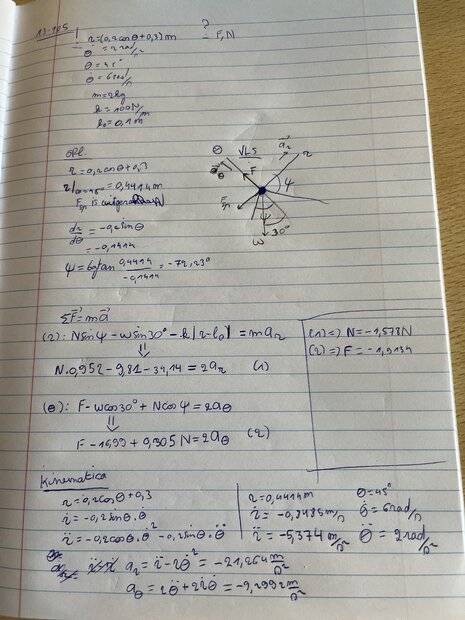 13-105
r=(0,2cosθ+0,3)m
?
= F,N
θ̈ = 2 rad/s²
θ = 45°
θ̇ = 6 rad/s
m=2kg
k = 100N/m
l₀ = 0,1m
Opl.
r = 0,2cosθ+0,3
r|θ=45° = 0,4414m
dr/dθ = -0,2sinθ
= -0,1414
Ψ = Bgtan 0,4414/-0,1414 = -72,23°
VLS
θ
F
r
Ψ
Ψ
W
30°
ΣF⃗=ma⃗
(r): NsinΨ - Wsin30° - k|r-l₀| = ma_r
⇓
N.0,952 - 9,81 - 34,14 = 2a_r (1)
(θ): F - Wcos30° + NcosΨ = 2a_θ
⇓
F - 16,99 + 0,305N = 2a_θ (2)
(1) => N = -1,578N
Kinematica
r = 0,2cosθ+0,3
ṙ = -0,2sinθ.θ̇
r̈ = -0,2cosθ.θ̇² - 0,2sinθ.θ̈
r = 0,4414m
ṙ = -0,8485m/s
r̈ = -5,374m/s²
θ = 45°
θ̇ = 6rad/s
θ̈ = 2rad/s²
a_r = r̈ - rθ̇² = -21,264 m/s²
a_θ = rθ̈ + 2ṙθ̇ = -9,2992 m/s²